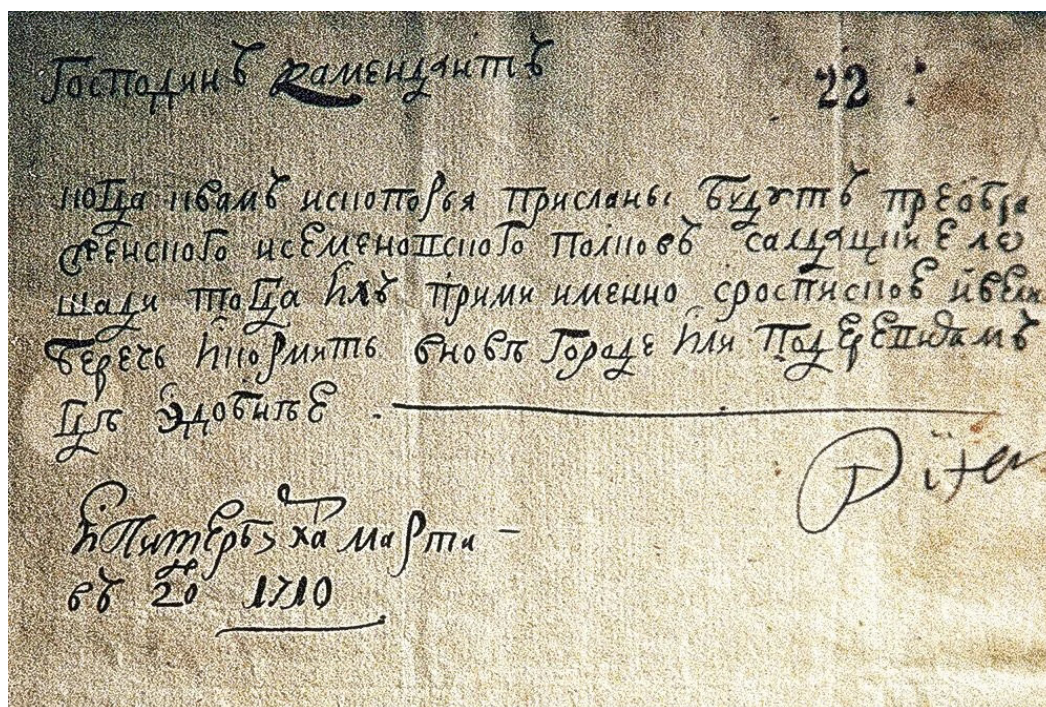 Господинъ камендантъ 22
когда квамъ ископорья присланы будутъ преобра
женского исеменовского полковъ салдацкие ло
шади тогда ихъ прими именно сроспискою ивели
беречь икормить вновѣ городе или подеревнямъ
гдѣ удобнѣе
Piter
Питербурха марта
въ 20 1710